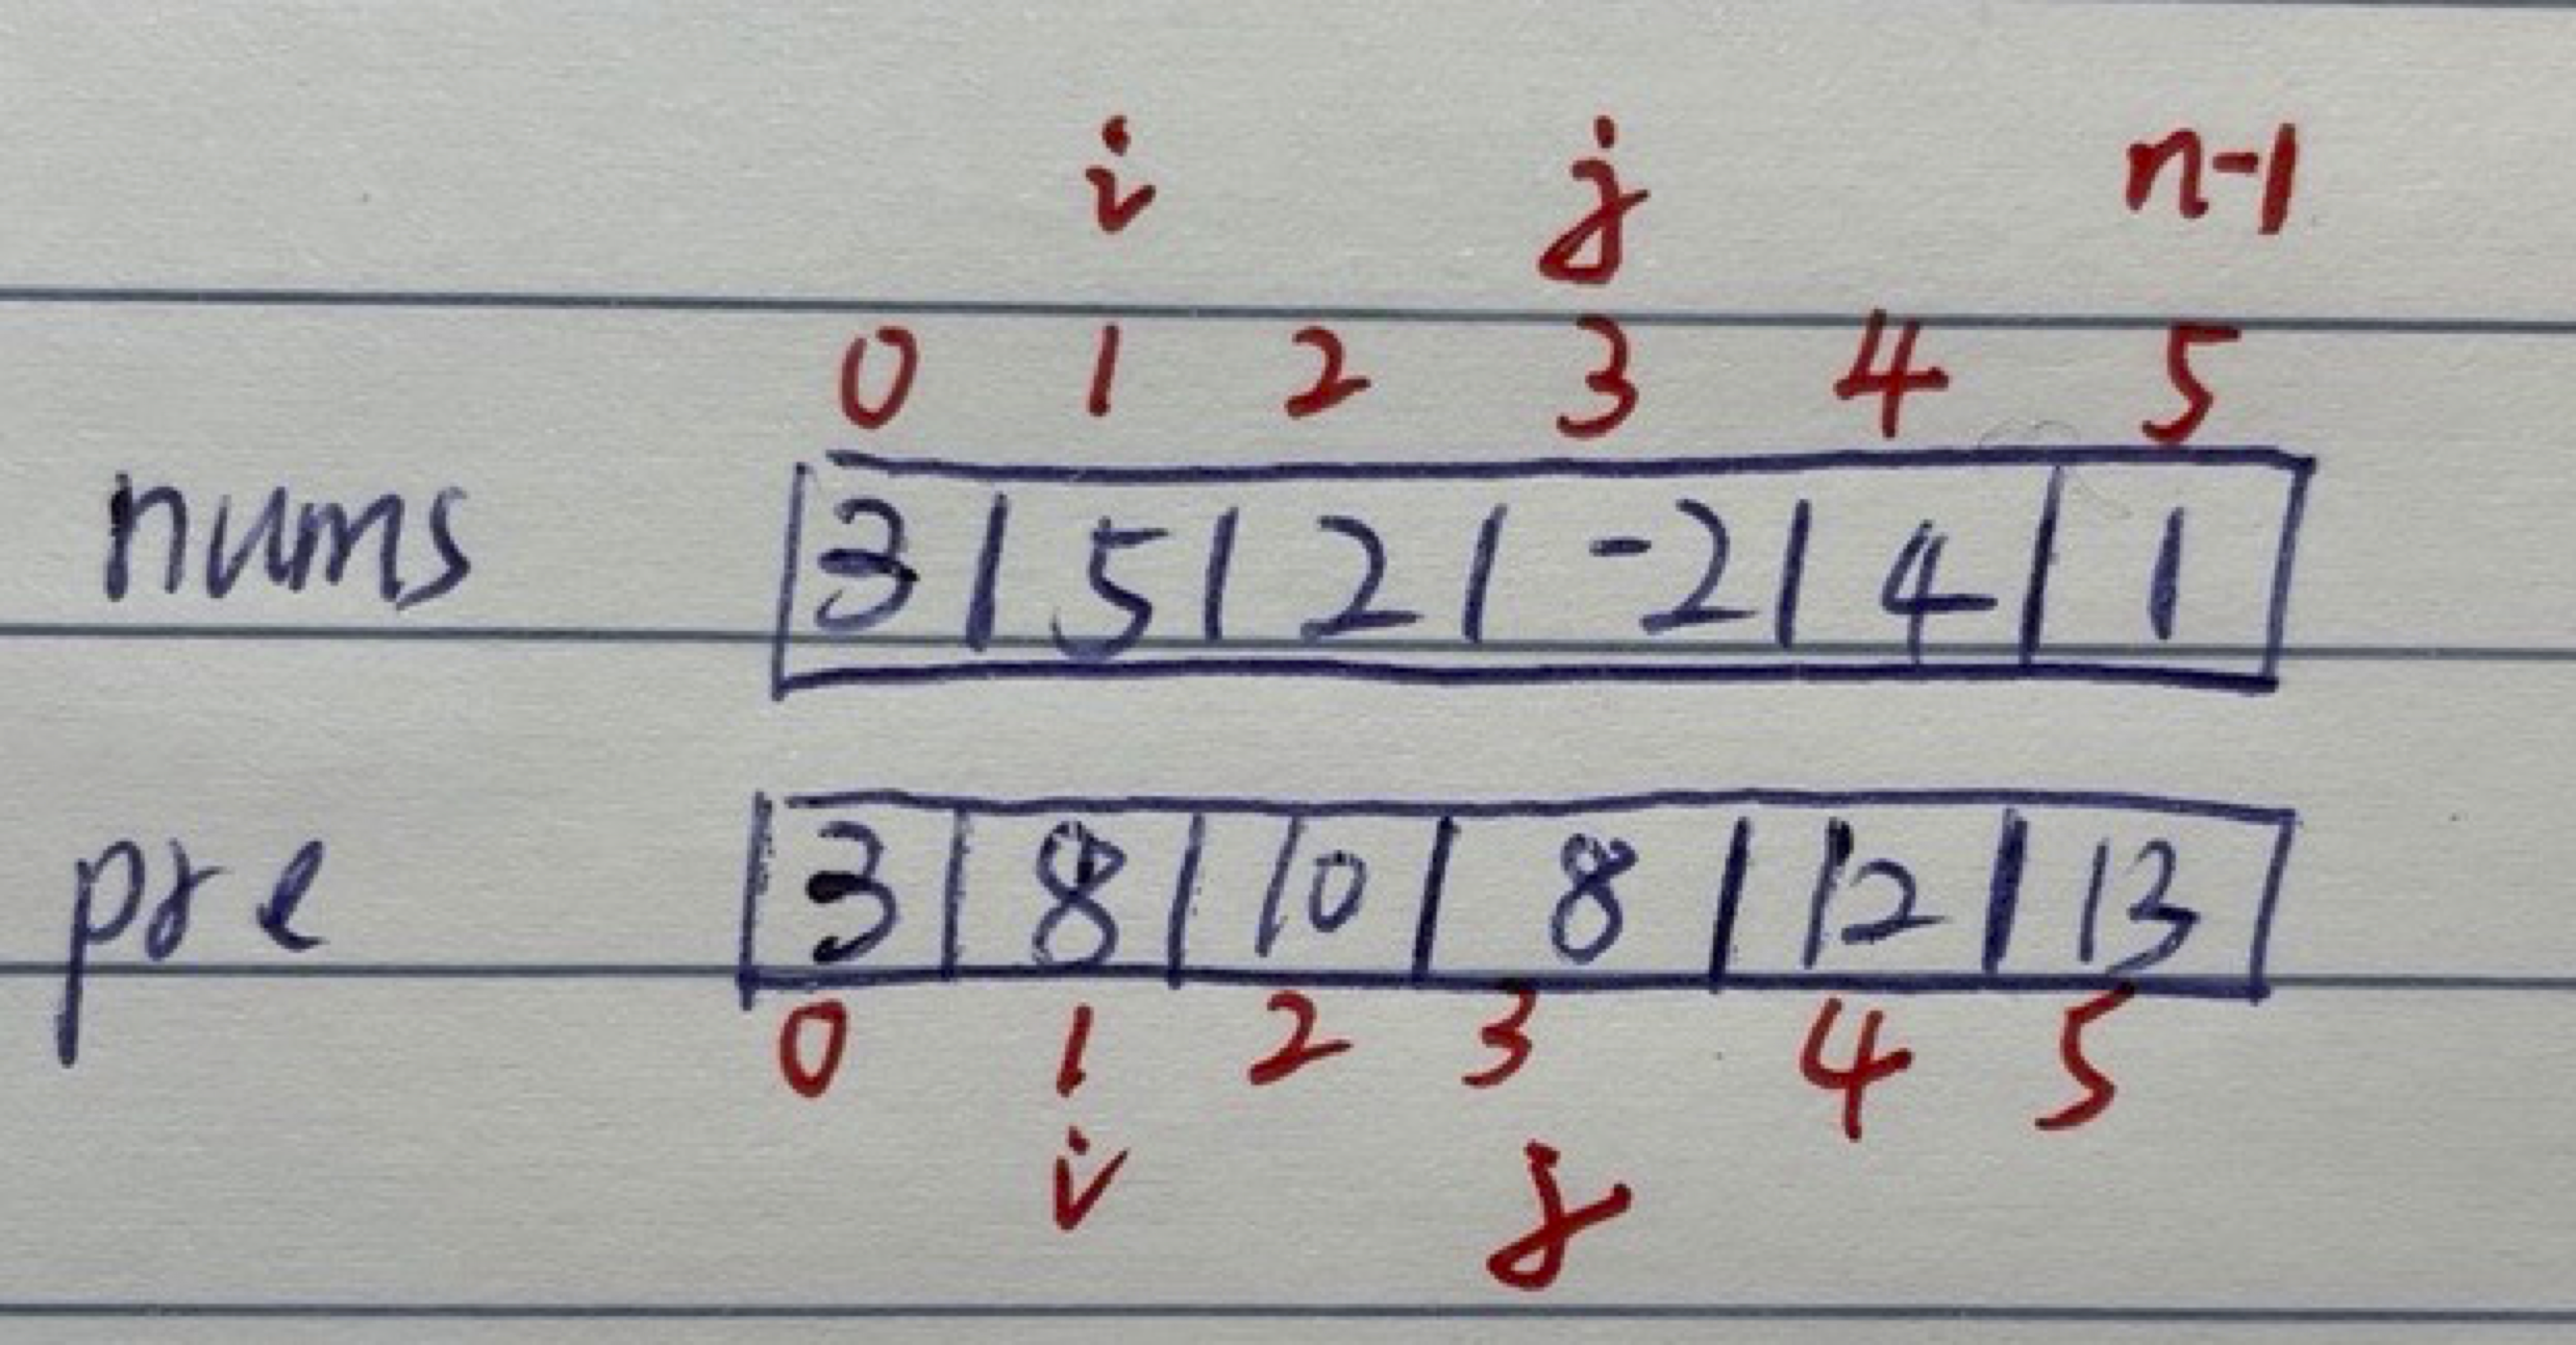 i j n-1
0 1 2 3 4 5
nums 3 5 2 -2 4 1
pre 3 8 10 8 12 13
0 1 2 3 4 5
i j